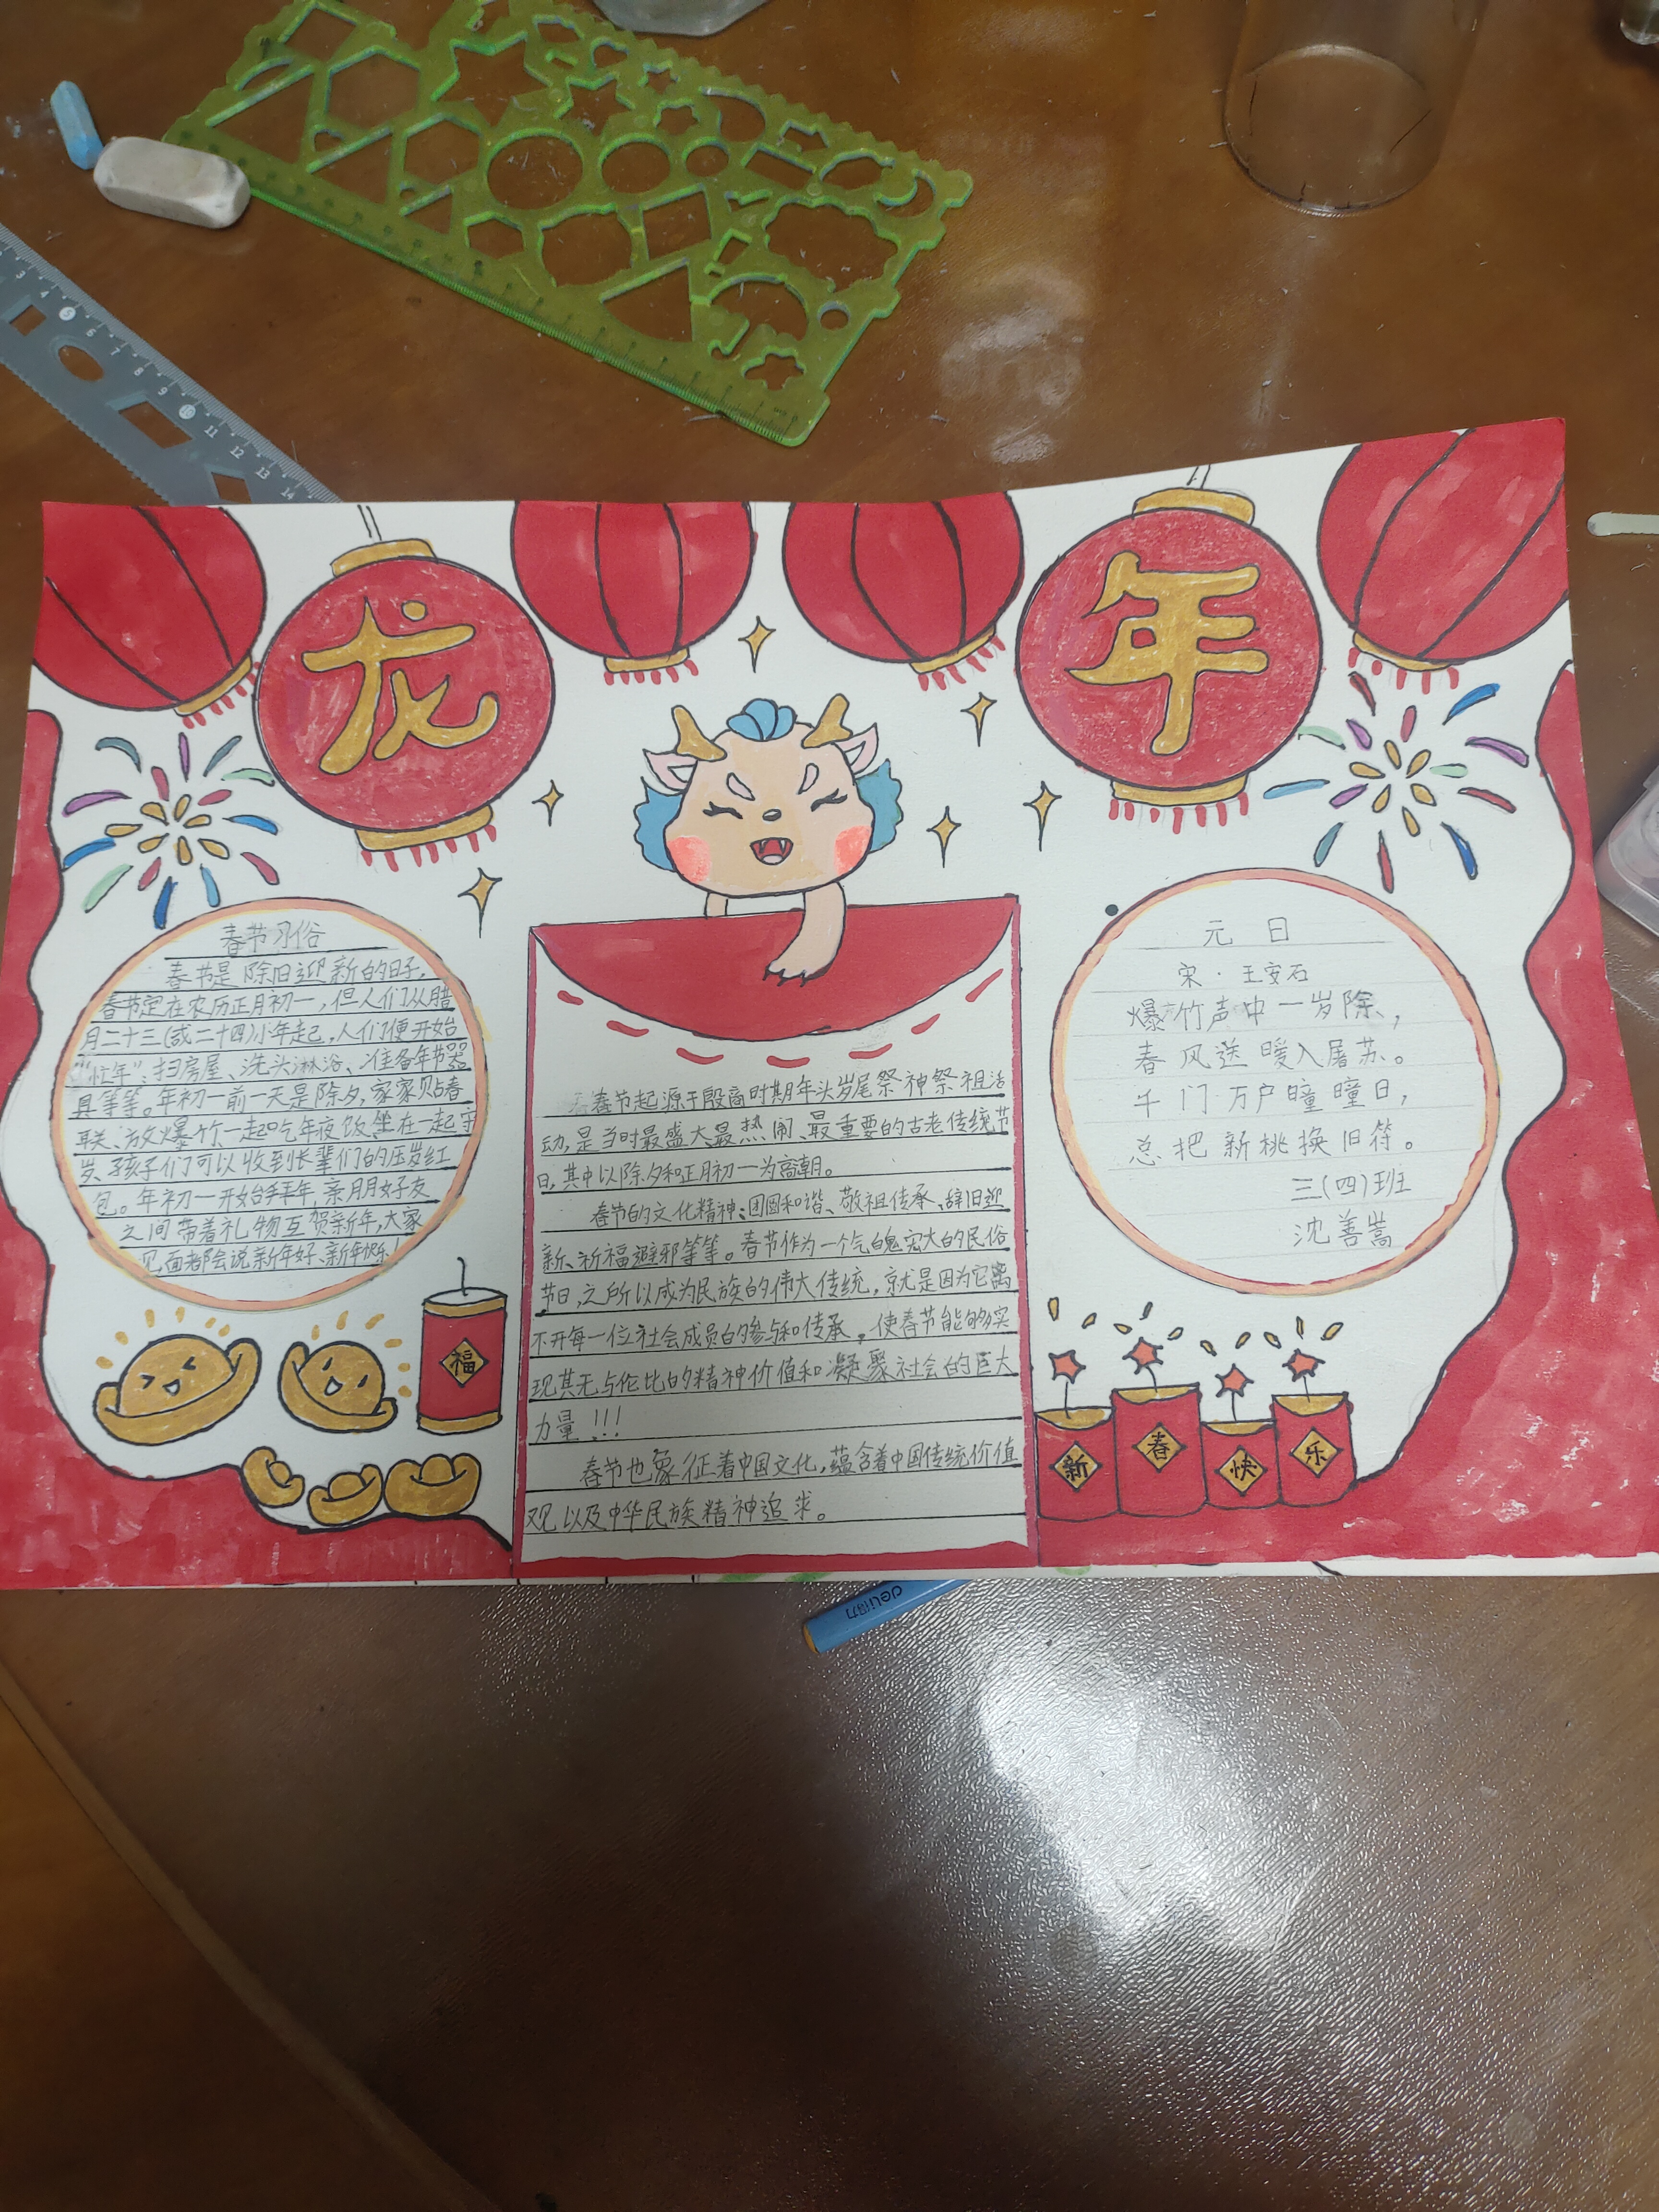 龙年
春节习俗
春节是除旧迎新的日子,
春节定在农历正月初一,但人们从腊
月二十三(或二十四)小年起,人们便开始
“忙年”:扫房屋、洗头淋浴、准备年节器
具等等。年初一前一天是除夕,家家贴春
联、放爆竹一起吃年夜饭坐在一起守
岁、孩子们可以收到长辈们的压岁红
包。年初一开始拜年,亲朋好友
之间带着礼物互贺新年,大家
见面都会说新年好、新年快乐!
福
春节起源于殷商时期年头岁尾祭神祭祖活
动,是当时最盛大最热闹、最重要的古老传统节
日,其中以除夕和正月初一为高潮。
春节的文化精神:团圆和谐、敬祖传承、辞旧迎
新、祈福避邪等等。春节作为一个气魄宏大的民俗
节日,之所以成为民族的伟大传统,就是因为它离
不开每一位社会成员的参与和传承,使春节能够实
现其无与伦比的精神价值和凝聚社会的巨大
力量!!!
春节也象征着中国文化,蕴含着中国传统价值
观以及中华民族精神追求。
元日
宋·王安石
爆竹声中一岁除,
春风送暖入屠苏。
千门万户曈曈日,
总把新桃换旧符。
三(四)班
沈善嵩
新春快乐
deli得力
3 4 5 6 7 8 9 10 11 12 13 14